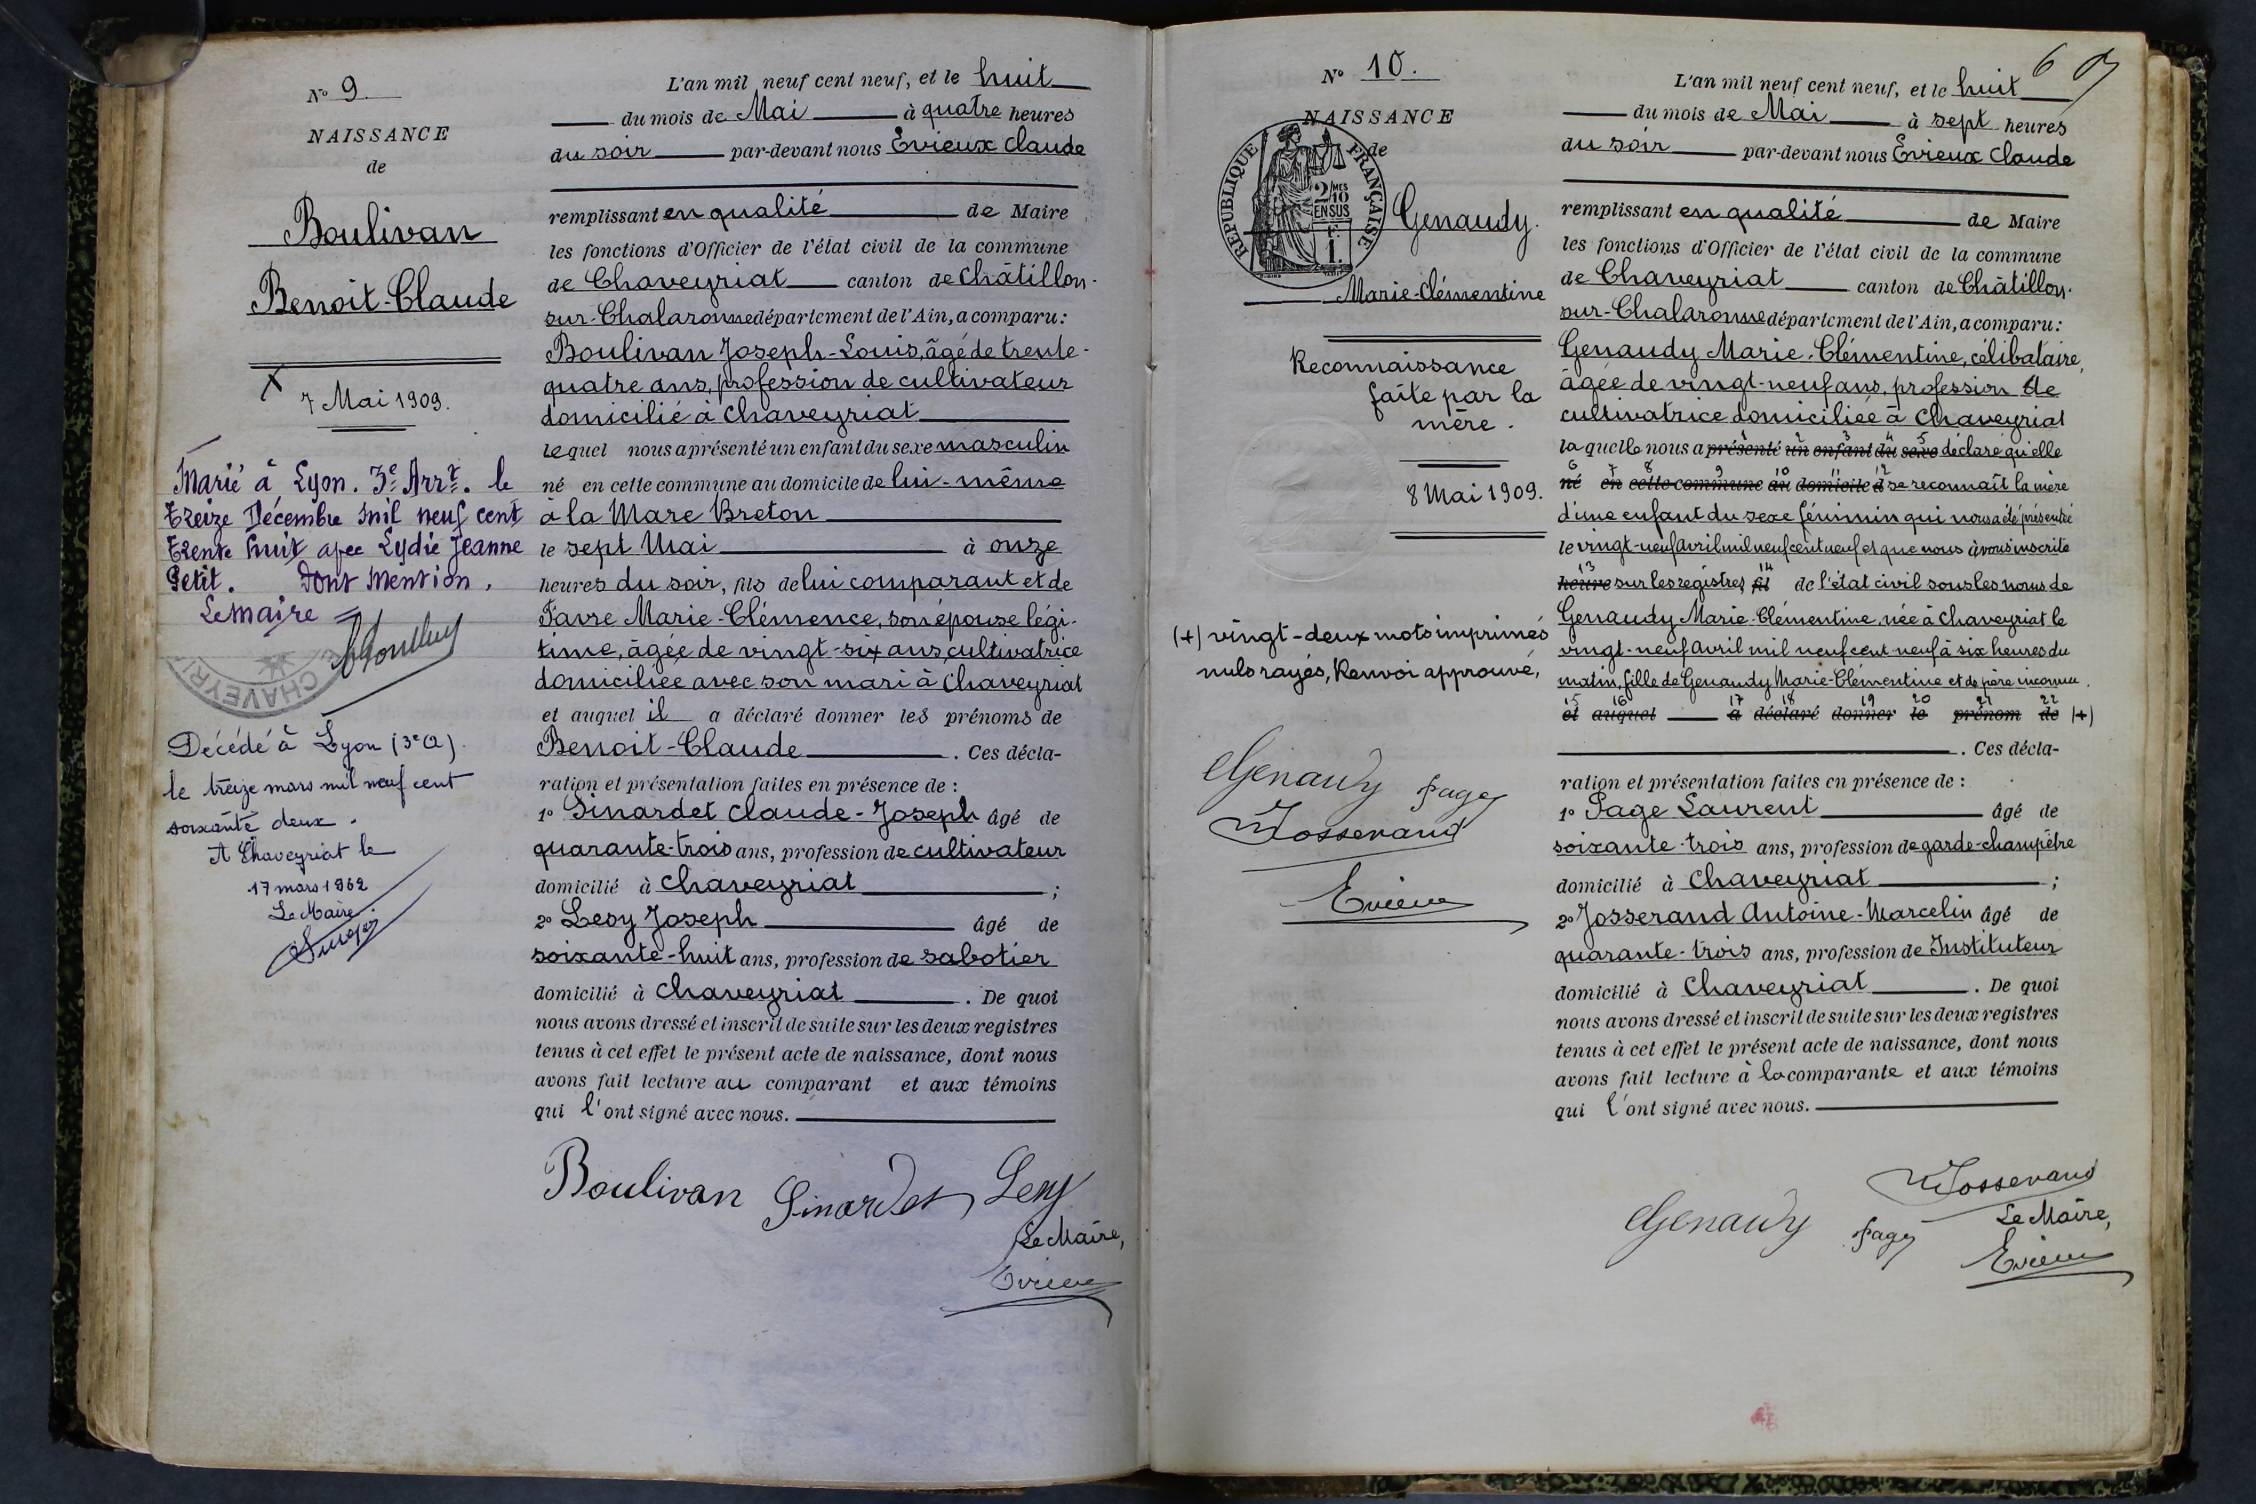 N° 9
NAISSANCE
de
Boulivan
Benoit-Claude
7 Mai 1909.
Marié à Lyon. 3e Arrt. le
treize Décembre mil neuf cent
trente huit avec Lydie Jeanne
Petit. Dont Mention.
Le Maire
CHAVEYRI
Décédé à Lyon (3e a).
le treize mars mil neuf cent
soixante deux.
A Chaveyriat le
17 mars 1962
Le Maire.
L'an mil neuf cent neuf, et le huit
du mois de Mai à quatre heures
du soir par-devant nous Evieux Claude
remplissant en qualité de Maire
les fonctions d'Officier de l'état civil de la commune
de Chaveyriat canton de Châtillon-
sur-Chalaronne département de l'Ain, a comparu:
Boulivan Joseph-Louis, âgé de trente-
quatre ans, profession de cultivateur
domicilié à Chaveyriat
lequel nous a présenté un enfant du sexe masculin
né en cette commune au domicile de lui-même
à la Mare Breton
le sept Mai à onze
heures du soir, fils de lui comparant et de
Favre Marie-Clémence, son épouse légi-
time, âgée de vingt-six ans, cultivatrice
domiciliée avec son mari à Chaveyriat
et auquel il a déclaré donner les prénoms de
Benoit-Claude. Ces décla-
ration et présentation faites en présence de :
1° Sinardet Claude-Joseph âgé de
quarante-trois ans, profession de cultivateur
domicilié à Chaveyriat ;
2° Lesy Joseph âgé de
soixante-huit ans, profession de sabotier
domicilié à Chaveyriat. De quoi
nous avons dressé et inscrit de suite sur les deux registres
tenus à cet effet le présent acte de naissance, dont nous
avons fait lecture au comparant et aux témoins
qui l'ont signé avec nous.
Boulivan Sinardet Lesy
Le Maire,
Evieux
N° 10.
NAISSANCE
de
REPUBLIQUE FRANÇAISE
2/10 MES
EN SUS
1F.
Genaudy.
Marie-Clémentine
Reconnaissance
faite par la
mère.
8 Mai 1909.
(+) vingt-deux mots imprimés
nuls rayés, Renvoi approuvé,
Genaudy Page
Josserand
Evieux
6
L'an mil neuf cent neuf, et le huit
du mois de Mai à sept heures
du soir par-devant nous Evieux Claude
remplissant en qualité de Maire
les fonctions d'Officier de l'état civil de la commune
de Chaveyriat canton de Châtillon-
sur-Chalaronne département de l'Ain, a comparu:
Genaudy Marie-Clémentine, célibataire,
âgée de vingt-neuf ans, profession de
cultivatrice domiciliée à Chaveyriat
laquelle nous a présenté un enfant du sexe déclaré qu'elle
né en cette commune au domicile d se reconnaît la mère
d'une enfant du sexe féminin qui nous a été présentée
le vingt-neuf avril mil neuf cent neuf et que nous avons inscrite
heure sur les registres fil de l'état civil sous les noms de
Genaudy Marie-Clémentine, née à Chaveyriat le
vingt-neuf avril mil neuf cent neuf à six heures du
matin, fille de Genaudy Marie-Clémentine et de père inconnu.
et auquel a déclaré donner le prénom de (+)
. Ces décla-
ration et présentation faites en présence de :
1° Page Laurent âgé de
soixante-trois ans, profession de garde-champêtre
domicilié à Chaveyriat ;
2° Josserand Antoine-Marcelin âgé de
quarante-trois ans, profession de Instituteur
domicilié à Chaveyriat. De quoi
nous avons dressé et inscrit de suite sur les deux registres
tenus à cet effet le présent acte de naissance, dont nous
avons fait lecture à la comparante et aux témoins
qui l'ont signé avec nous.
Josserand
Genaudy Page Le Maire,
Evieux